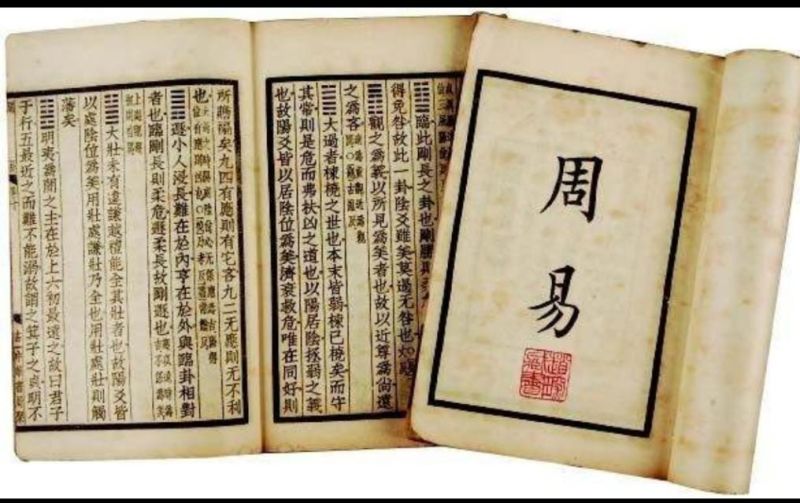 周易
䷒臨此剛長之卦也剛勝則
得免咎故此一卦陰爻雖美莫過无咎也
䷓觀之為義以所見為美者也故以近尊為尚遠
之為吝
䷛大過者棟橈之世也本末皆弱棟已橈矣而守
其常則是危而弗扶凶之道也以陽居陰拯弱之義
也故陽爻皆以居陰位為美濟衰救危唯在同好則
所贍褊矣九四有應則有它吝九二无應則无不利
也
䷠遯小人浸長難在於內亨在於外與臨卦相對
者也臨剛長則柔危遯柔長故剛遯也
䷡大壯未有違謙越禮能全其壯者也故陽爻皆
以處陰位為美用壯處謙壯乃全也用壯處壯則觸
藩矣
䷣明夷為闇之主在於上六初最遠之故曰君子
于行五最近之而難不能溺故謂之箕子之貞明不